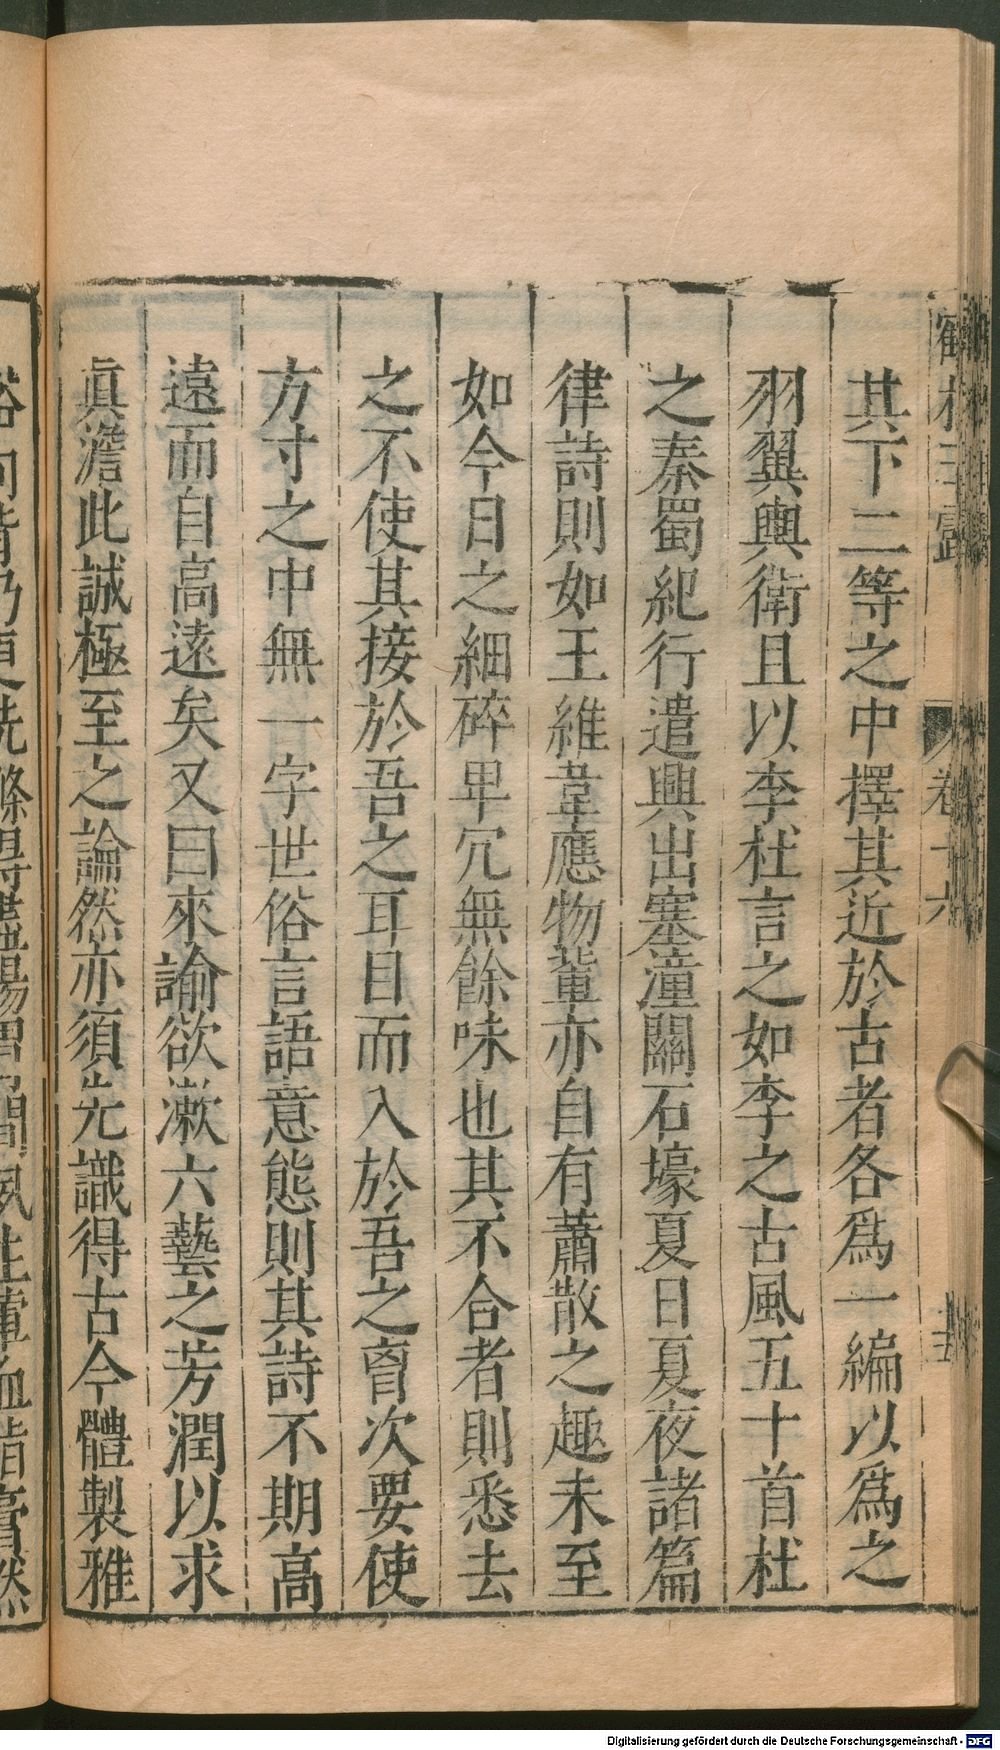 鶴林玉露 卷十六
其下二等之中擇其近於古者各爲一編以爲之
羽翼輿衛且以李杜言之如李之古風五十首杜
之秦蜀紀行遣興出塞潼關石壕夏日夏夜諸篇
律詩則如王維韋應物輩亦自有蕭散之趣未至
如今日之細碎卑冗無餘味也其不合者則悉去
之不使其接於吾之耳目而入於吾之胷次要使
方寸之中無一字世俗言語意態則其詩不期高
遠而自高遠矣又曰來諭欲漱六藝之芳潤以求
眞澹此誠極至之論然亦須先識得古今體製雅
俗向背乃更洗滌得盡腸胃間夙生葷血脂膏然
Digitalisierung gefördert durch die Deutsche Forschungsgemeinschaft - DFG